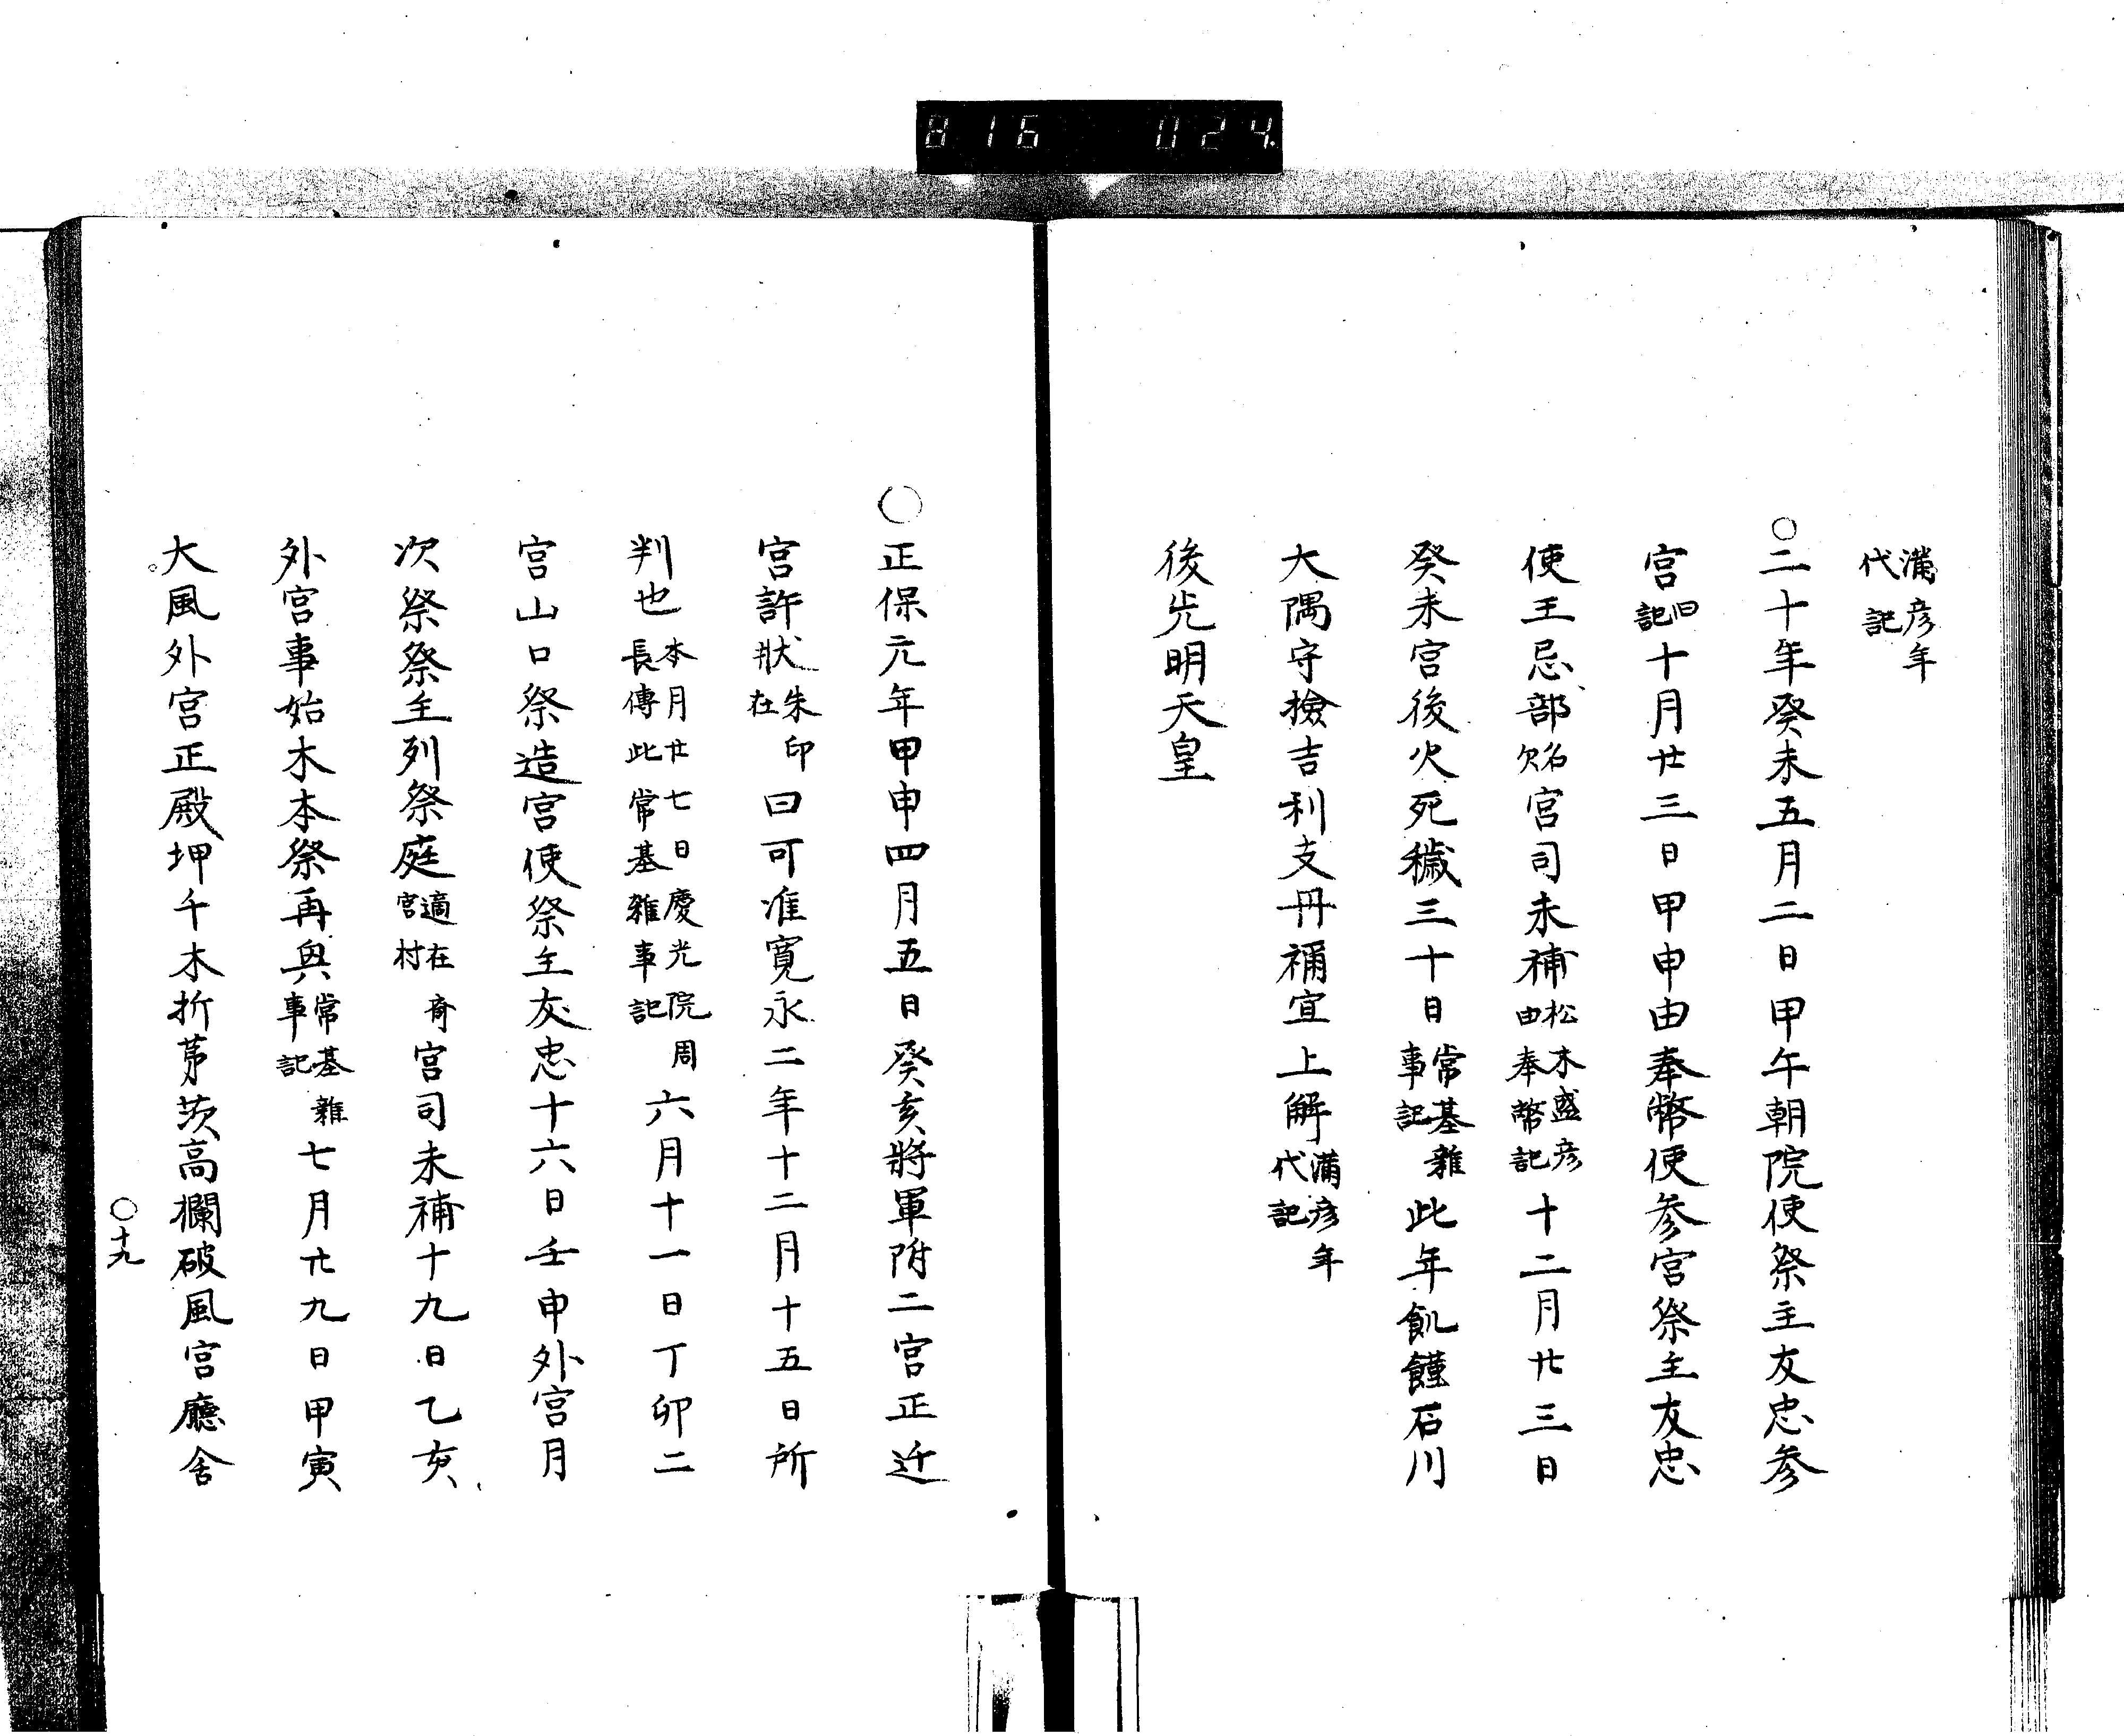 816 024
満彦年代記
○二十年癸未五月二日甲午朝院使祭主友忠参
宮旧記十月廿三日甲申由奉幣使参宮祭主友忠
使王忌部名欠宮司未補松木盛彦由奉幣記十二月廿三日
癸未宮後火死穢三十日常基雑事記此年飢饉石川
大隅守撿吉利支丹禰宜上解満彦年代記
後光明天皇
○正保元年甲申四月五日癸亥將軍附二宮正迁
宮許狀朱印在曰可准寛永二年十二月十五日所
判也本月廿七日慶光院周長傳此常基雑事記六月十一日丁卯二
宮山口祭造宮使祭主友忠十六日壬申外宮月
次祭祭主列祭庭適在斎宮村宮司未補十九日乙亥
外宮事始木本祭再興常基雑事記七月廿九日甲寅
大風外宮正殿坤千木折茅茨高欄破風宮廳舎
○十九